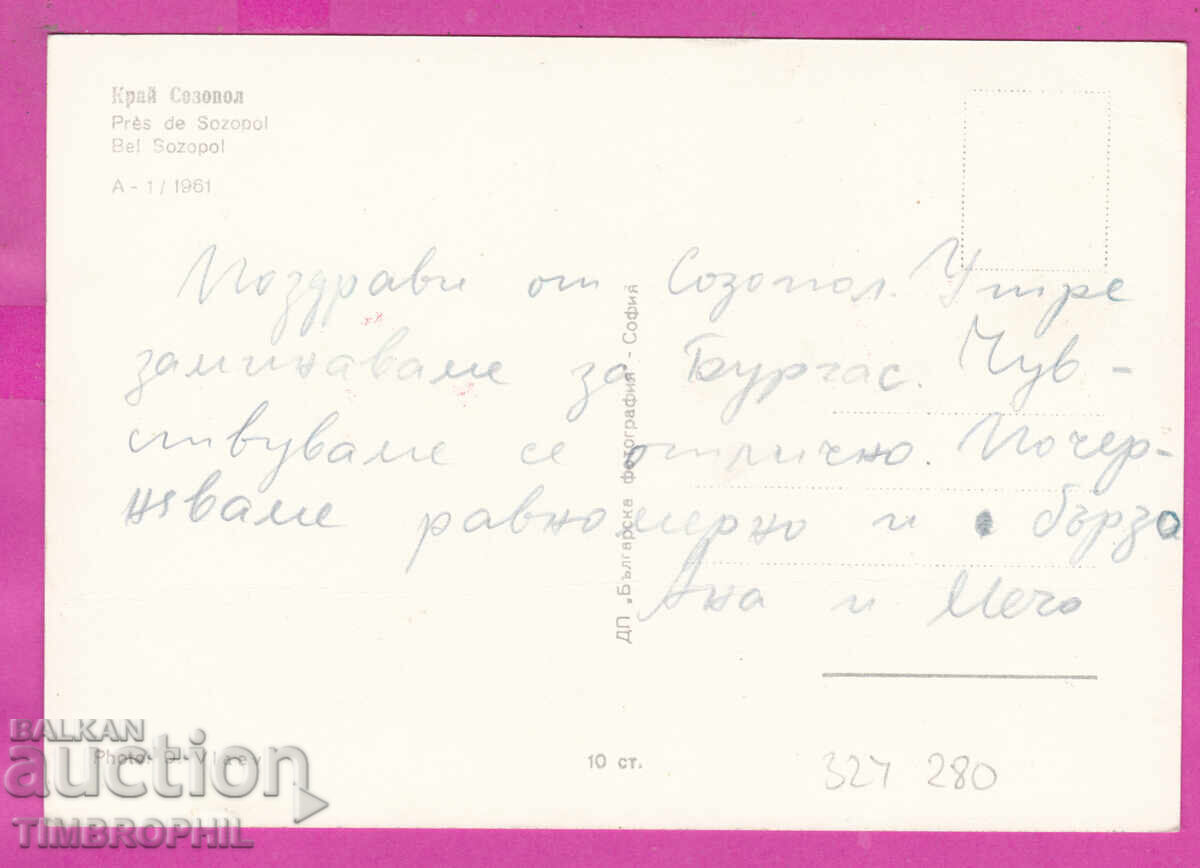 Край Созопол
Près de Sozopol
Bei Sozopol
А - 1 / 1961
Поздрави от Созопол. Утре
заминаваме за Бургас. Чув-
ствуваме се отлично. Почер-
няваме равномерно и бързо
Ана и Мечо
ДП „Българска фотография" - София
BALKAN
auction
TIMBROPHIL
Photo: D. Vlaev
10 ст.
327 280